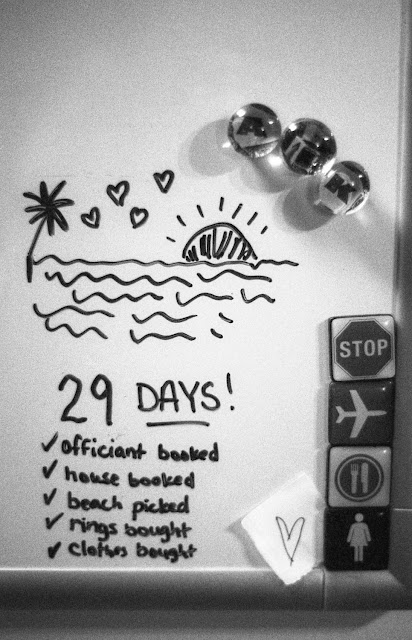 A
K
STOP
29 DAYS!
✓ officiant booked
✓ house booked
✓ beach picked
✓ rings bought
✓ clothes bought